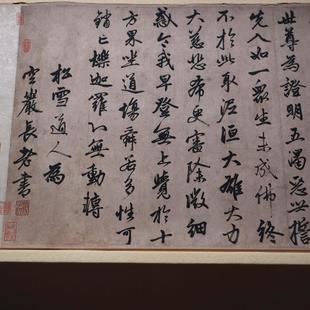 世尊為證明五濁惡世誓
先入如一眾生未成佛終
不於此取泥洹大雄大力
大慈悲希更審除微細
惑令我早登無上覺於十
方界坐道場舜若多性可
銷亡爍迦羅心無動轉
松雪道人為
空巖長老書